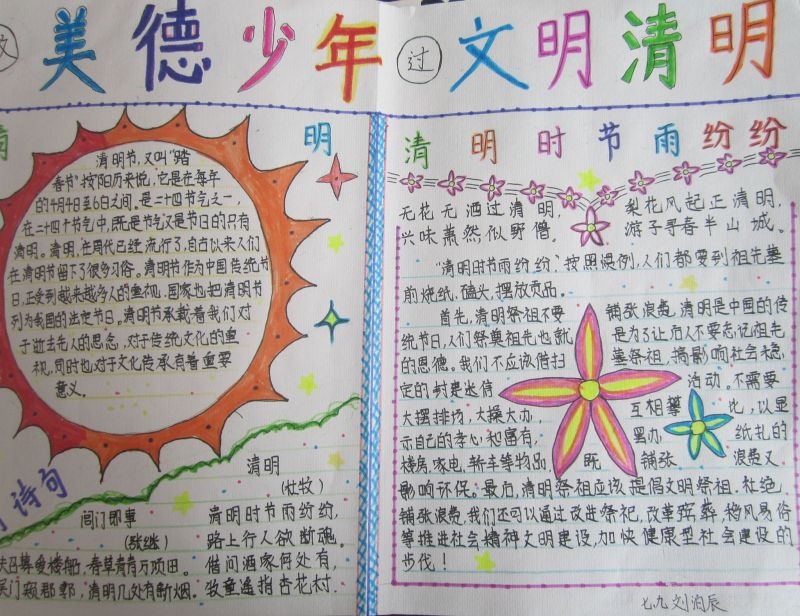 美德少年 过 文明清明
明
清明节，又叫"踏
春节"按阳历来说，它是在每年
的4月4日至6日之间。是二十四节气之一，
在二十四节气中，既是节气又是节日的只有
清明。清明，在周代已经流行了，自古以来人们
在清明节留下了很多习俗。清明节作为中国传统节
日，正受到越来越多人的重视，国家也把清明节
列为我国的法定节日。清明节承载着我们对
于逝去先人的思念，对于传统文化的重
视，同时也对于文化传承有着重要
意义。
诗句
阊门即事
(张继)
召募爱楼船，春草青青万顷田。
门窥郡郭，清明几处有新烟。
清明
(杜牧)
清明时节雨纷纷，
路上行人欲断魂。
借问酒家何处有，
牧童遥指杏花村.
清明时节雨纷纷
无花无酒过清明， 梨花风起正清明，
兴味萧然似野僧。 游子寻春半山城。
"清明时节雨纷纷"按照惯例，人们都要到祖先墓
前烧纸，磕头，摆放贡品。
首先，清明祭祖不要 铺张浪费，清明是中国的传
统节日，人们祭奠祖先也就 是为了让后人不要忘记祖先
的恩德。我们不应该借扫 墓祭祖，搞影响社会稳，
定的封建迷信 活动，不需要
大摆排场，大操大办， 互相攀 比，以显
示自己的孝心和富有， 罢办 纸扎的
楼房，家电，轿车等物品， 既 铺张 浪费又
影响环保。最后，清明祭祖应该提倡文明祭祖，杜绝
铺张浪费，我们还可以通过改进祭祀，改革殡葬，移风易俗
等推进社会精神文明建设，加快健康型社会建设的
步伐！
七九 刘泊辰